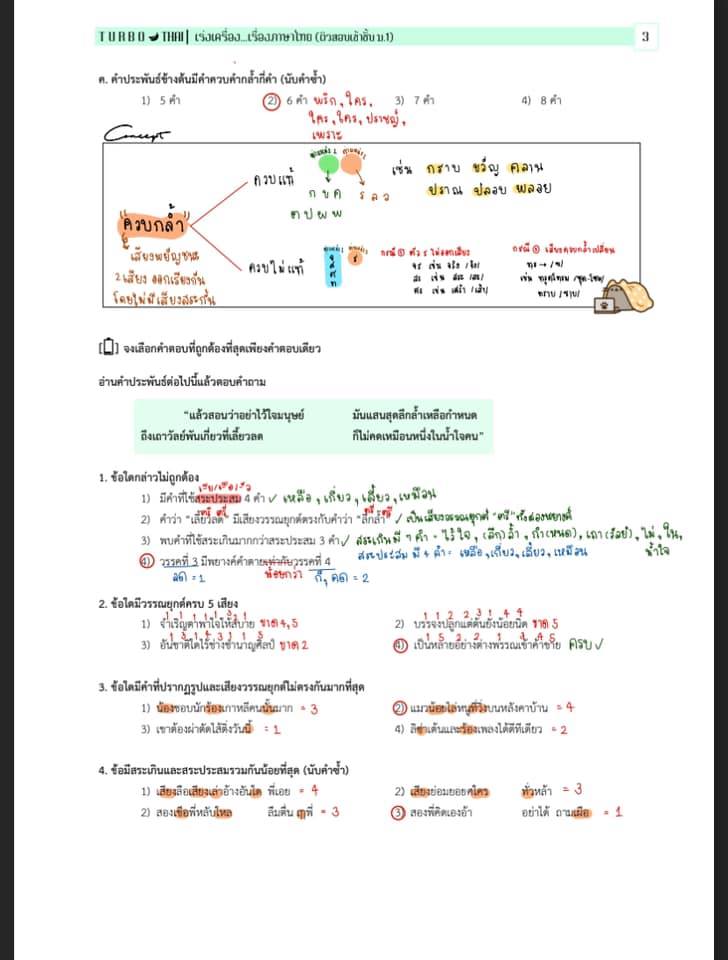 TURBO THAI | เร่งเครื่อง...เรื่องภาษาไทย (ติวสอบเข้าชั้น ม.1) 3
ค. คำประพันธ์ข้างต้นมีคำควบคำกล้ำกี่คำ (นับคำซ้ำ)
1) 5 คำ 2) 6 คำ พริก, ใคร, 3) 7 คำ 4) 8 คำ
ใคร, ใคร, ปราชญ์,
เพราะ
Concept
ควบแท้ เช่น กราบ ขวัญ คลาน
ก ข ค ร ล ว ปราณ ปลอบ พลอย
ต ป ผ พ
"ควบกล้ำ"
เสียงพยัญชนะ
2 เสียง ออกเรียงกัน
โดยไม่มีเสียงสระกั้น
ควบไม่แท้
จ ซ ศ ส ร
กรณี ① ตัว ร ไม่ออกเสียง
จร เช่น จริง /จิง/
สร เช่น สระ /สะ/
ศร เช่น เศร้า /เส้า/
กรณี ② เสียงควบกล้ำเปลี่ยน
ทร → /ซ/
ทราบ /ซาบ/
จงเลือกคำตอบที่ถูกต้องที่สุดเพียงคำตอบเดียว
อ่านคำประพันธ์ต่อไปนี้แล้วตอบคำถาม
"แล้วสอนว่าอย่าไว้ใจมนุษย์ มันแสนสุดลึกล้ำเหลือกำหนด
ถึงเถาวัลย์พันเกี่ยวที่เลี้ยวลด ก็ไม่คดเหมือนหนึ่งในน้ำใจคน"
1. ข้อใดกล่าวไม่ถูกต้อง
เอีย/เอือ/อัว
1) มีคำที่ใช้สระประสม 4 คำ ✓ เหลือ, เกี่ยว, เลี้ยว, เหมือน
ตรี ตรี ตรี ตรี
2) คำว่า "เลี้ยวลด" มีเสียงวรรณยุกต์ตรงกับคำว่า "ลึกล้ำ" ✓ เป็นเสียงวรรณยุกต์ "ตรี" ทั้งสองพยางค์
3) พบคำที่ใช้สระเกินมากกว่าสระประสม 3 คำ ✓ สระเกินมี 7 คำ = ไว้ใจ, (ลึก)ล้ำ, กำ(หนด), เถา(วัลย์), ไม่, ใน, น้ำใจ
สระประสม มี 4 คำ = เหลือ, เกี่ยว, เลี้ยว, เหมือน
4) วรรคที่ 3 มีพยางค์คำตายเท่ากับวรรคที่ 4
ลด = 1 น้อยกว่า ก็, คด = 2
2. ข้อใดมีวรรณยุกต์ครบ 5 เสียง
1) จำเริญตาพาใจให้สบาย ขาด 4, 5 2) บรรจงปลูกแต่ต้นยังน้อยนิด ขาด 5
3) อันชาติใดไร้ช่างชำนาญศิลป์ ขาด 2 4) เป็นหลายอย่างต่างพรรณเข้าค้าขาย ครบ ✓
3. ข้อใดมีคำที่ปรากฏรูปและเสียงวรรณยุกต์ไม่ตรงกันมากที่สุด
1) น้องชอบนักร้องเกาหลีคนนั้นมาก = 3 2) แมวน้อยไล่หนูที่วิ่งบนหลังคาบ้าน = 4
3) เขาต้องผ่าตัดไส้ติ่งวันนี้ = 1 4) ลิซ่าเต้นและร้องเพลงได้ดีทีเดียว = 2
4. ข้อมีสระเกินและสระประสมรวมกันน้อยที่สุด (นับคำซ้ำ)
1) เสียงลือเสียงเล่าอ้างอันใด พี่เอย = 4 2) เสียงย่อมยอยศใคร ทั่วหล้า = 3
2) สองเขือพี่หลับใหล ลืมตื่น ฤๅพี่ = 3 3) สองพี่คิดเองอ้า อย่าได้ ถามเผือ = 1